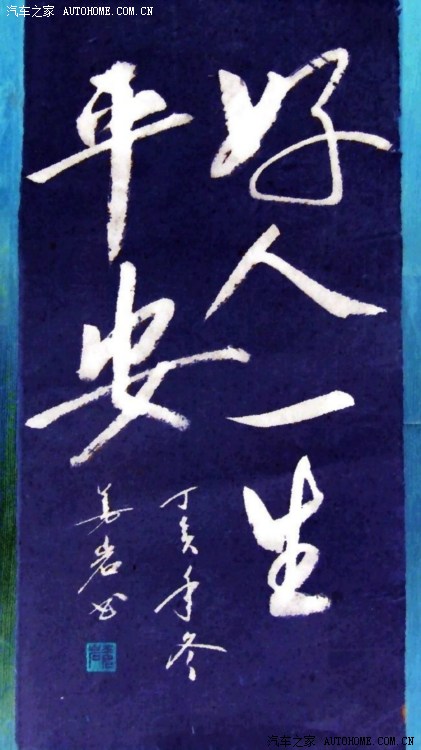 汽车之家 AUTOHOME.COM.CN
好人一生
平安
丁亥年冬
姜岩书
汽车之家 AUTOHOME.COM.CN